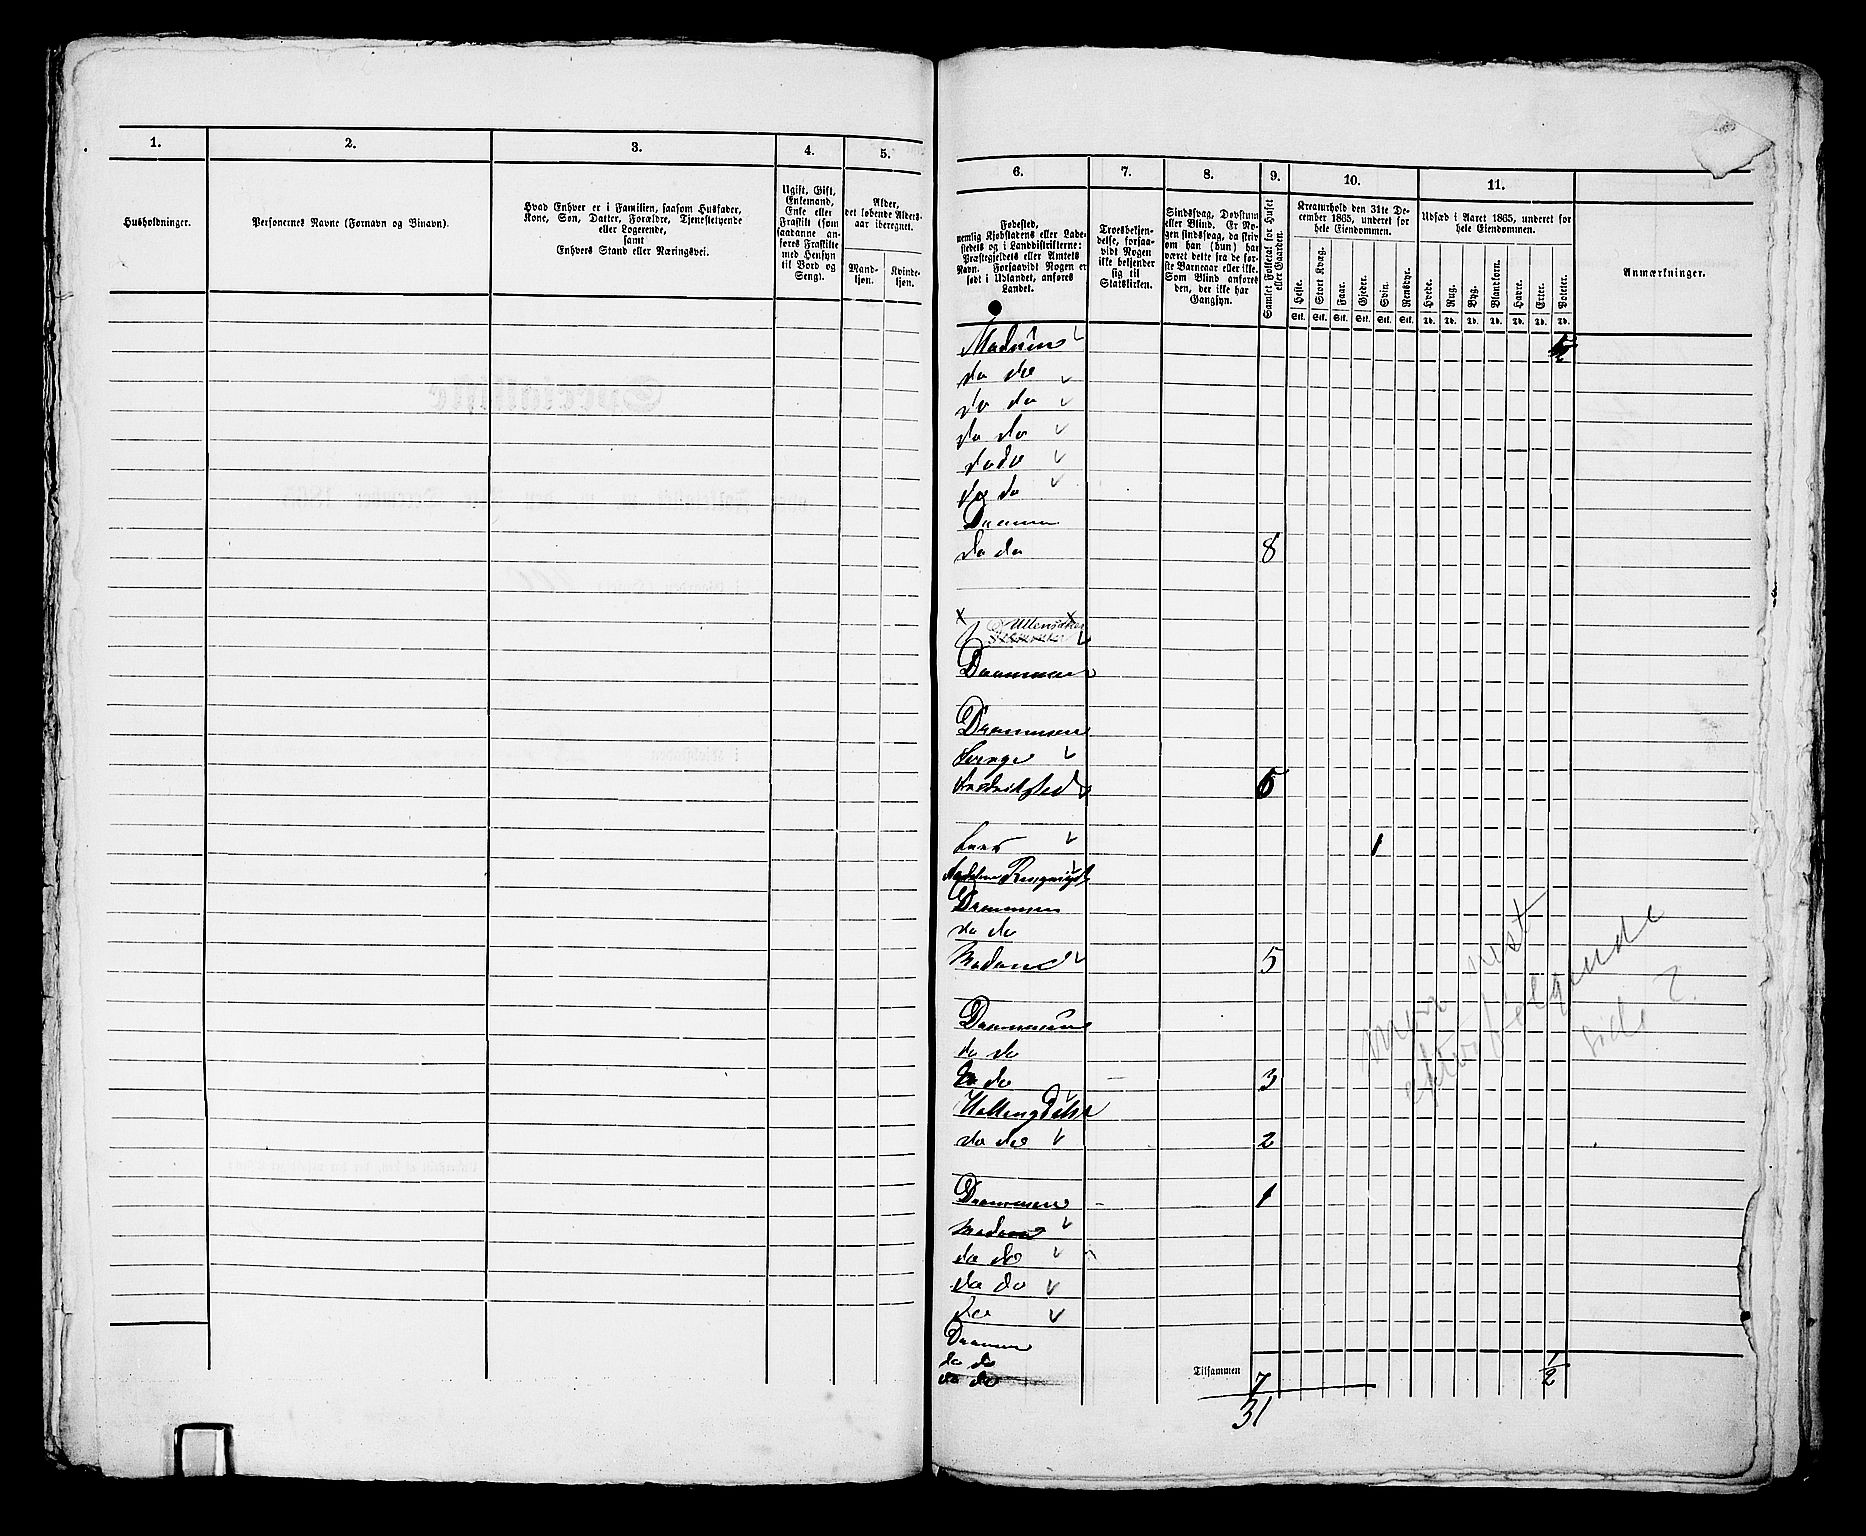 1.
2.
3.
4.
5.
Husholdninger.
Personernes Navne (Fornavn og Binavn).
Hvad Enhver er i Familien, saasom Husfader,
Kone, Søn, Datter, Forældre, Tjenestetyende
eller Logerende,
samt
Enhvers Stand eller Næringsvei.
Ugift, Gift,
Enkemand,
Enke eller
Fraskilt (som
saadanne an-
føres Fraskilte
med Hensyn
til Bord og
Seng).
Alder,
det løbende Alders-
aar iberegnet.
Mand-
kjøn.
Kvinde-
kjøn.
6.
7.
8.
9.
10.
11.
Fødested,
nemlig Kjøbstadens eller Lade-
stedets og i Landdistrikterne:
Præstegjeldets eller Amtets
Navn. Forsaavidt Nogen er
født i Udlandet, anføres
Landet.
Troesbekjen-
delse, forsaa-
vidt Nogen
ikke bekjender
sig til
Statskirken.
Sindssvag, Døvstum
eller Blind. Er No-
gen sindssvag, da skriv
om han (hun) har
været dette fra de før-
ste Barneaar eller ikke.
Som Blind anføres
den, der ikke har
Gangsyn.
Samlet Folketal for Huset
eller Gaarden.
Kreaturhold den 31te De-
cember 1865, underet for
hele Eiendommen.
Heste.
Stort Kvæg.
Faar.
Gjeder.
Svin.
Rensdyr.
Stk. Stk. Stk. Stk. Stk. Stk.
Udsæd i Aaret 1865, underet for
hele Eiendommen.
Hvede.
Rug.
Byg.
Blandkorn.
Havre.
Erter.
Poteter.
Td. Td. Td. Td. Td. Td. Td.
Anmærkninger.
Modum
do do
do do
do do
do do
do do
Drammen
do do 8
Ullensaker
Drammen
Drammen
Fredrikstad 5
Lier 1
Drammen
do do
Modum 5
Drammen
do do
do 3
Hallingdal
do do 2
Drammen 1
Modum
do do
do do
do
Drammen
do do
do do
Tilsammen 7 1/2
31
mer nest
efterfølgende
side ?